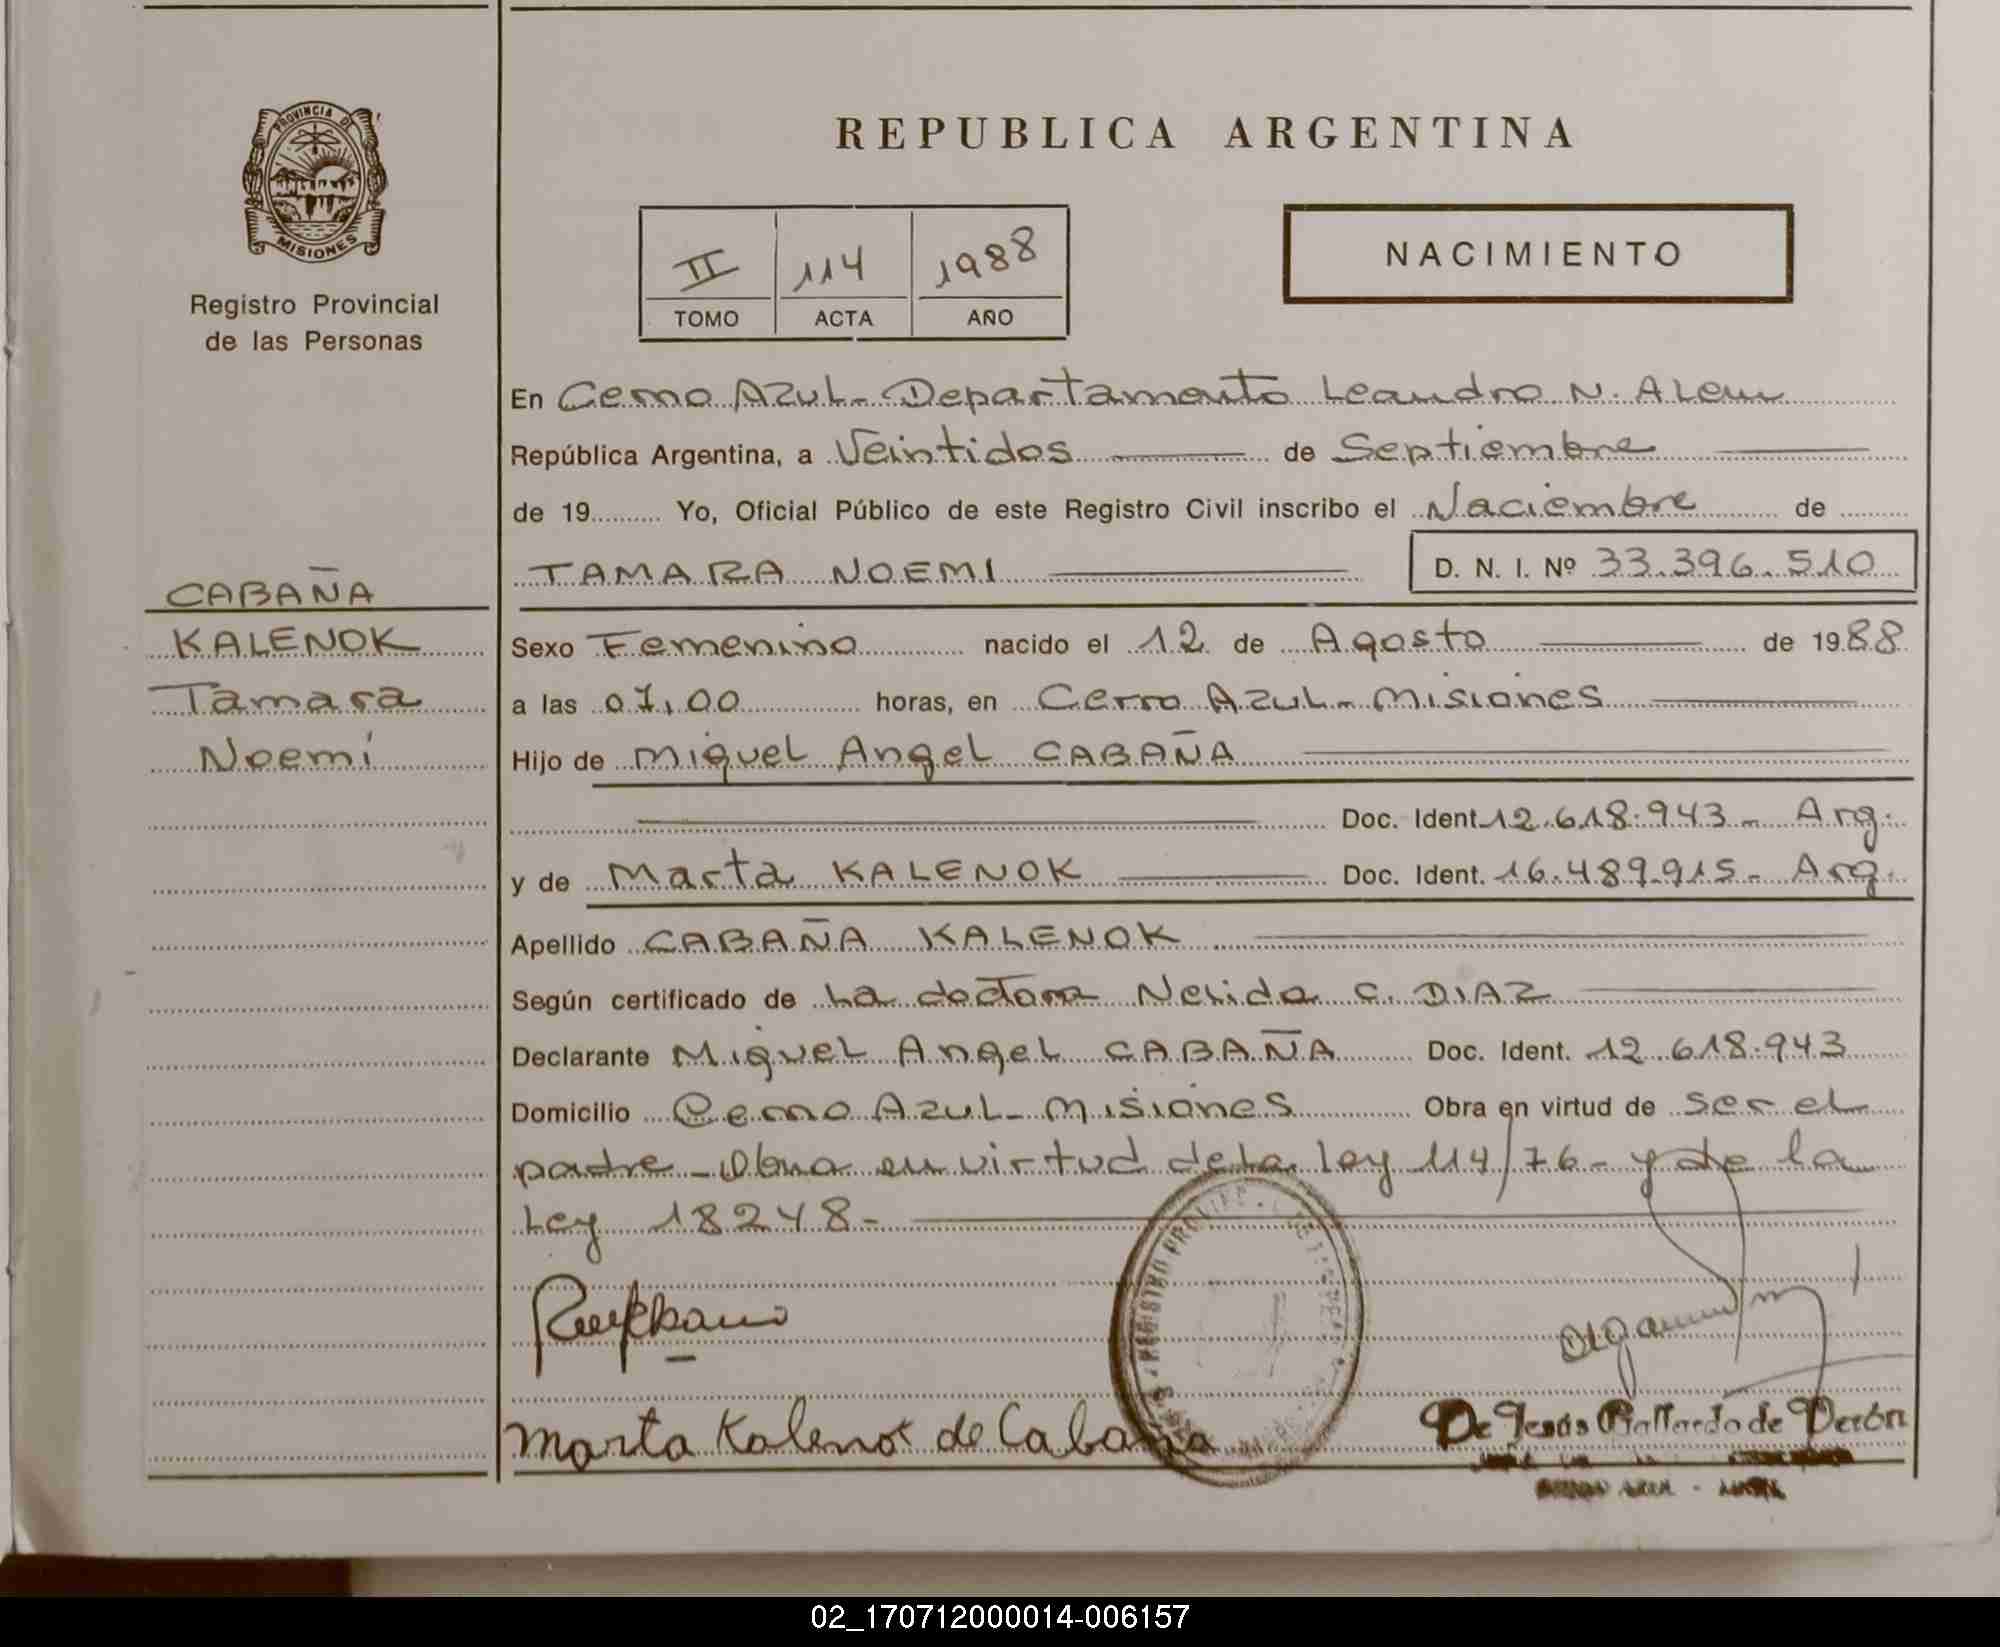 PROVINCIA DE
MISIONES
Registro Provincial
de las Personas
REPUBLICA ARGENTINA
NACIMIENTO
II 114 1988
TOMO ACTA AÑO
En Cerro Azul - Departamento Leandro N. Alem
República Argentina, a Veintidos de Septiembre
de 19 Yo, Oficial Público de este Registro Civil inscribo el Naciembre de
TAMARA NOEMI D. N. I. Nº 33.396.510
CABAÑA
KALENOK
Tamara
Noemí
Sexo Femenino nacido el 12 de Agosto de 1988
a las 07,00 horas, en Cerro Azul - Misiones
Hijo de Miguel Angel CABAÑA
Doc. Ident 12.618.943 - Arg.
y de Marta KALENOK Doc. Ident. 16.489.915 - Arg.
Apellido CABAÑA KALENOK
Según certificado de La doctora Nelida C. DIAZ
Declarante Miguel Angel CABAÑA Doc. Ident. 12.618.943
Domicilio Cerro Azul - Misiones Obra en virtud de ser el
padre - Obra en virtud de la ley 114/76 - y de la
Ley 18248 -
Marta Kalenok de Cabaña
De Jesús Gallardo de Verón
02_170712000014-006157